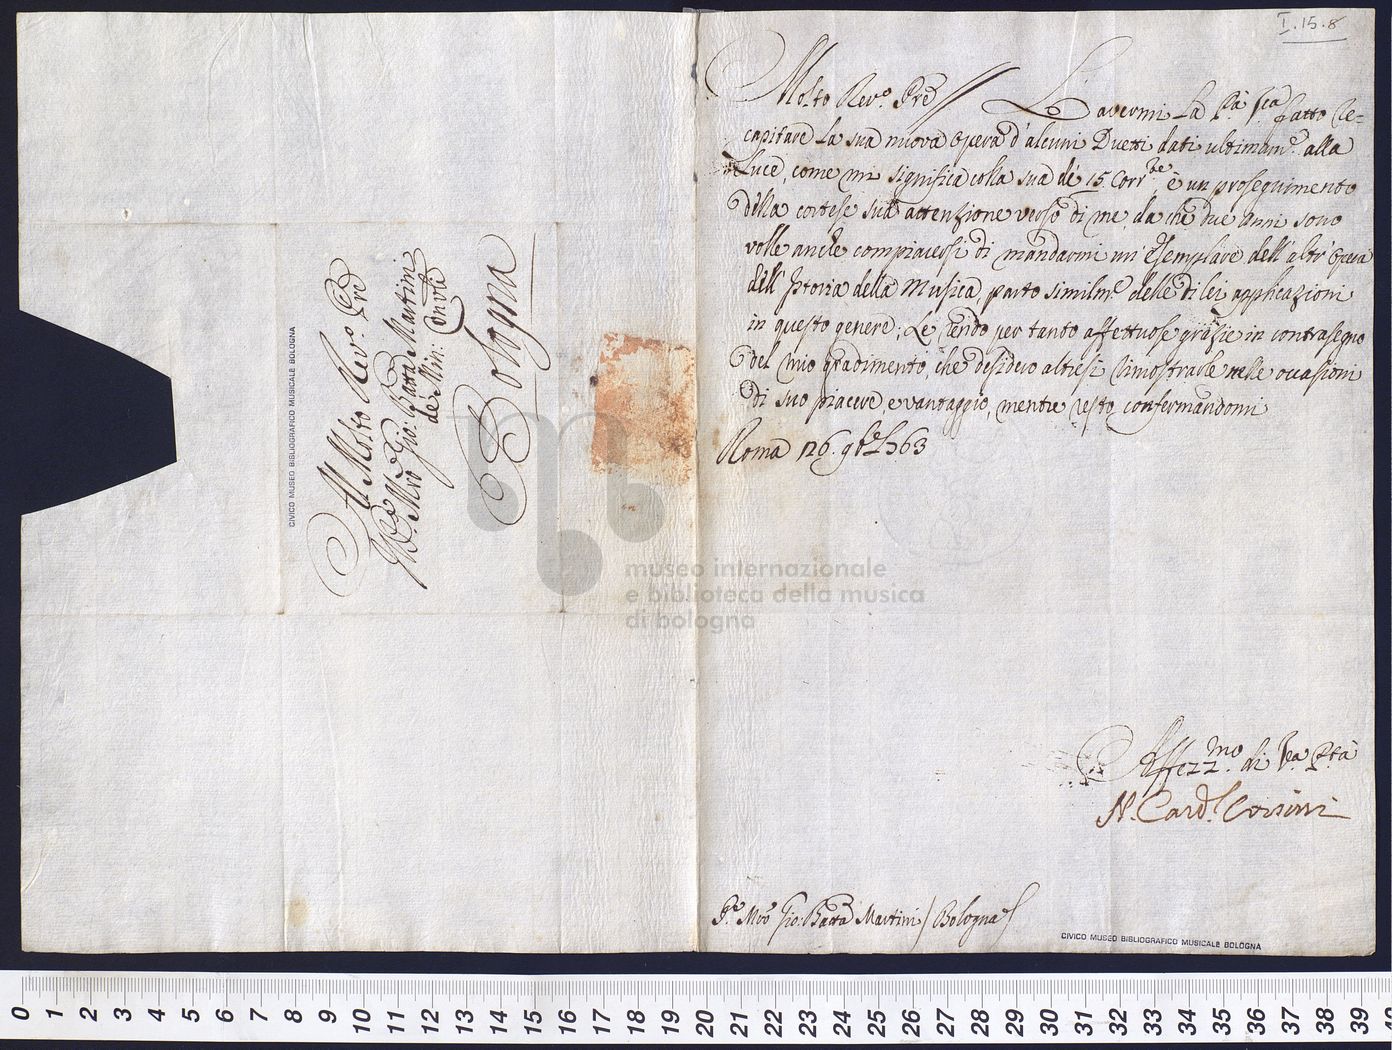 Al Molto Rev.º Pre
P.re Mro Gio: Batta Martini
de Min: Conv.li
Bologna
CIVICO MUSEO BIBLIOGRAFICO MUSICALE BOLOGNA
I.15.8
Molto Rev.º Pre // L'avermi La P.tà Sca fatto re=
capitare la sua nuova opera d'alcuni Duetti dati ultimam.e alla
Luce, come mi significa colla sua de 15. Corr.te, è un proseguimento
della cortese sua attenzione verso di me, da che due anni sono
volle anche compiacersi di mandarmi un'Esemplare dell'altr'opera
dell'Istoria della Musica, parto similm.e delle di lei applicazioni
in questo genere; Le rendo per tanto affettuose grazie in contrasegno
del mio gradimento, che desidero altresì dimostrarle nelle occasioni
di suo piacere, e vantaggio, mentre resto confermandomi
Roma 126. 9bre 1763
Affezz.mo di Va P.tà
N. Card.l Corsini
P.re Mro Gio: Batta Martini / Bologna
CIVICO MUSEO BIBLIOGRAFICO MUSICALE BOLOGNA
museo internazionale
e biblioteca della musica
di bologna
0 1 2 3 4 5 6 7 8 9 10 11 12 13 14 15 16 17 18 19 20 21 22 23 24 25 26 27 28 29 30 31 32 33 34 35 36 37 38 39